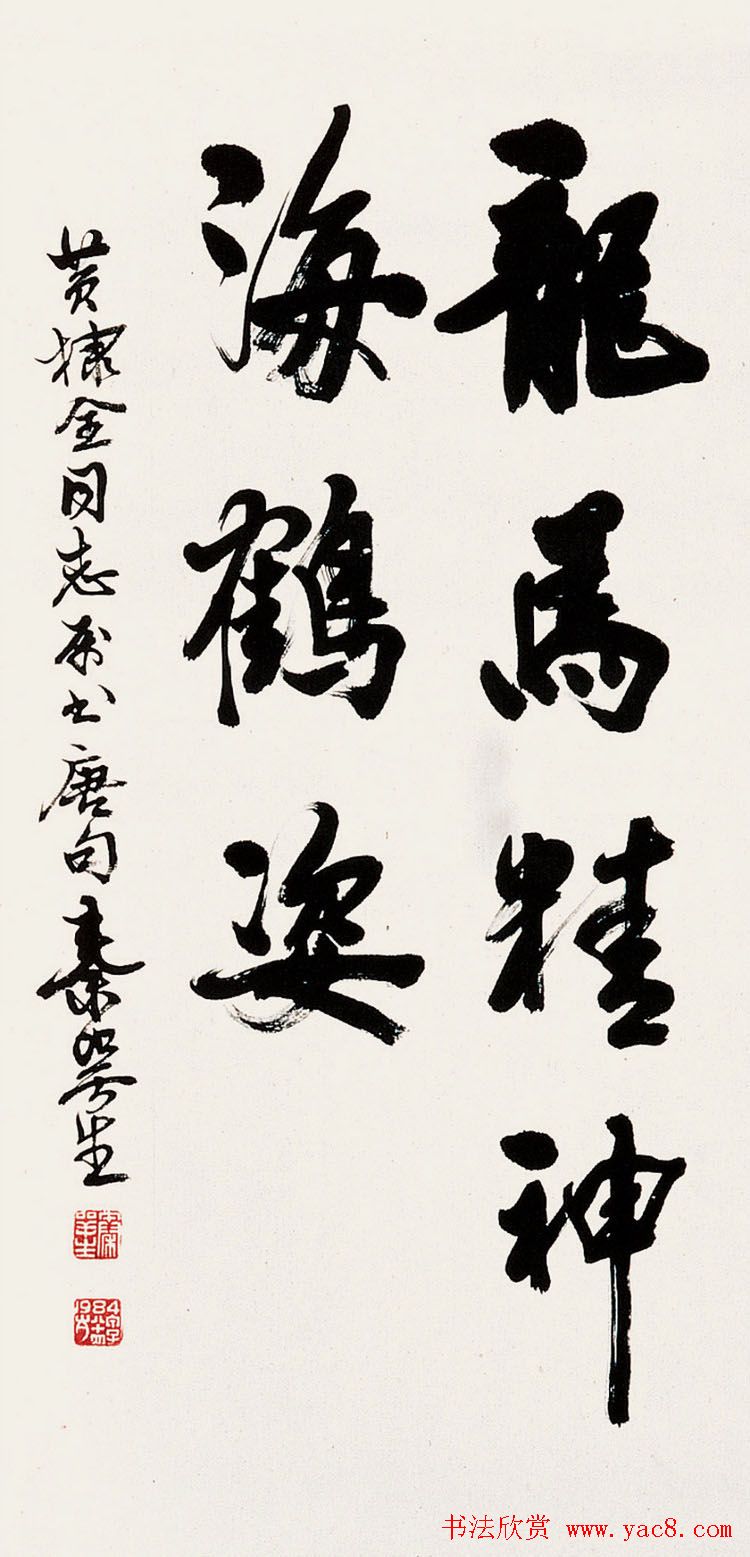 龍馬精神
海鶴姿
黄棣全同志属书唐句秦咢生
书法欣赏 www.yac8.com